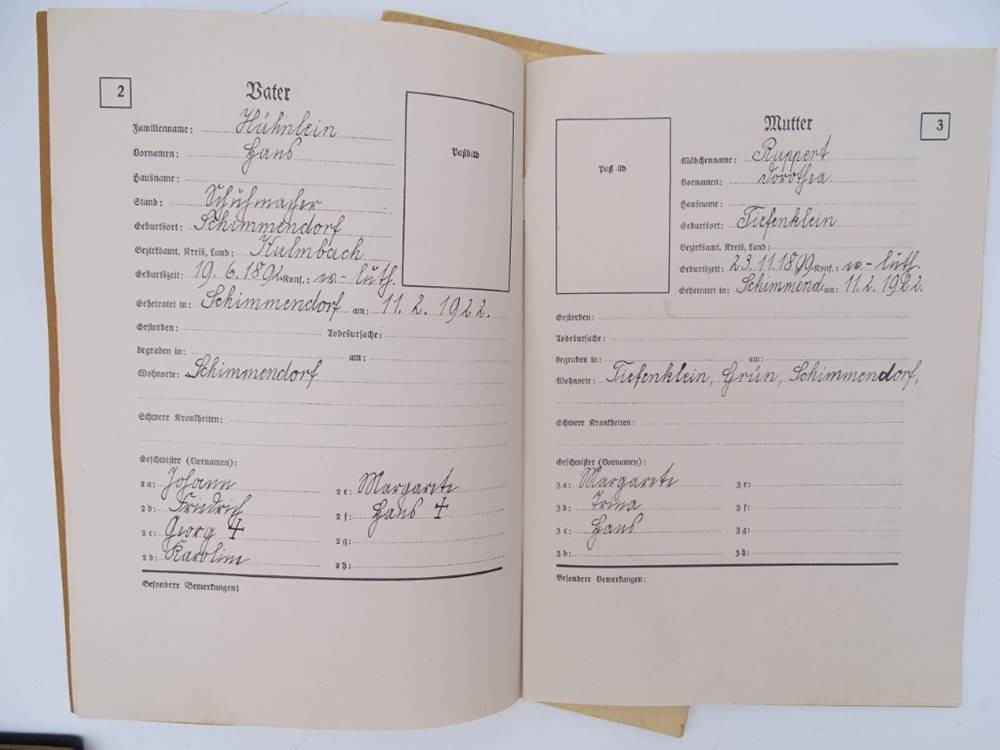 2
Vater
Familienname: Hühnlein
Vornamen: Hans
Hausname:
Stand: Schuhmacher
Geburtsort: Schimmendorf
Bezirksamt, Kreis, Land: Kulmbach
Geburtszeit: 19. 6. 189 Konf.: ev-luth.
Geheiratet in: Schimmendorf am: 11. 2. 1922.
Gestorben: Todesursache:
begraben in: am:
Wohnorte: Schimmendorf
Schwere Krankheiten:
Geschwister (Vornamen):
2a: Johann 2e: Margarete
2b: Friedrich 2f: Hans ✝
2c: Georg ✝ 2g:
2d: Karolina 2h:
Besondere Bemerkungen:
Paßbild
3
Mutter
Mädchenname: Ruppert
Vornamen: Dorothea
Hausname:
Geburtsort: Tiefenklein
Bezirksamt, Kreis, Land:
Geburtszeit: 23. 11. 1899 Konf.: ev-luth.
Geheiratet in: Schimmend am: 11. 2. 1922.
Gestorben:
Todesursache:
begraben in: am:
Wohnorte: Tiefenklein, Grün, Schimmendorf,
Schwere Krankheiten:
Geschwister (Vornamen):
3a: Margarete 3e:
3b: Trina 3f:
3c: Hans 3g:
3d: 3h:
Besondere Bemerkungen:
Paßbild